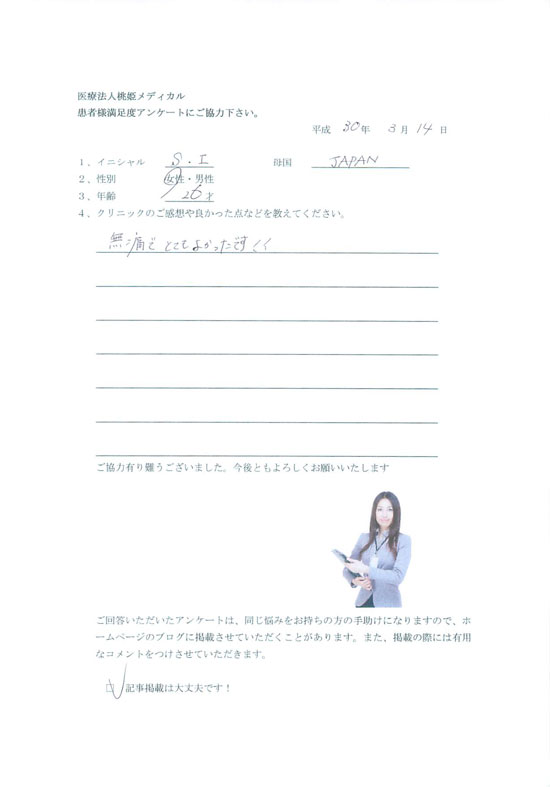 医療法人桃姫メディカル
患者様満足度アンケートにご協力下さい。
平成 30年 3月 14日
1、イニシャル S.I 母国 JAPAN
2、性別 女性・男性
3、年齢 26才
4、クリニックのご感想や良かった点などを教えてください。
無痛でとてもよかったです
ご協力有り難うございました。今後ともよろしくお願いいたします
ご回答いただいたアンケートは、同じ悩みをお持ちの方の手助けになりますので、ホ
ームページのブログに掲載させていただくことがあります。また、掲載の際には有用
なコメントをつけさせていただきます。
□ 記事掲載は大丈夫です！